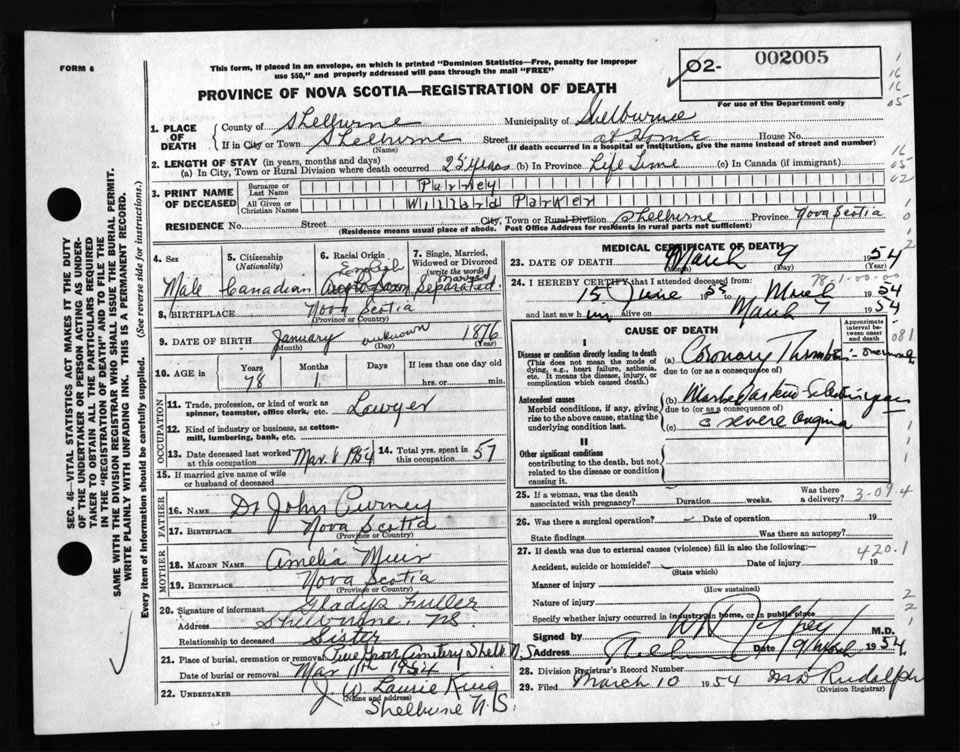 FORM 6
This form, if placed in an envelope, on which is printed "Dominion Statistics—Free, penalty for improper
use $50," and properly addressed will pass through the mail "FREE"
PROVINCE OF NOVA SCOTIA—REGISTRATION OF DEATH
02- 002005
For use of the Department only
1. PLACE OF DEATH
County of Shelburne Municipality of Shelburne
If in City or Town Shelburne Street at Home House No.
(Name) (If death occurred in a hospital or institution, give the name instead of street and number)
2. LENGTH OF STAY (in years, months and days)
(a) In City, Town or Rural Division where death occurred 25 years (b) In Province Life Time (c) In Canada (if immigrant)
3. PRINT NAME OF DECEASED
Surname or Last Name Purney
All Given or Christian Names Willard Parker
RESIDENCE No. Street City, Town or Rural Division Shelburne Province Nova Scotia
(Residence means usual place of abode. Post Office Address for residents in rural parts not sufficient)
4. Sex
Male
5. Citizenship (Nationality)
Canadian
6. Racial Origin
English
7. Single, Married, Widowed or Divorced (write the word)
Married
Separated.
8. BIRTHPLACE Nova Scotia
(Province or Country)
9. DATE OF BIRTH January unknown 1876
(Month) (Day) (Year)
10. AGE in Years Months Days If less than one day old
78 1 hrs. or min.
OCCUPATION
11. Trade, profession, or kind of work as spinner, teamster, office clerk, etc. Lawyer
12. Kind of industry or business, as cotton-mill, lumbering, bank, etc.
13. Date deceased last worked at this occupation Mar. 8 1954 14. Total yrs. spent in this occupation 57
15. If married give name of wife or husband of deceased
FATHER
16. Name Dr John Purney
17. Birthplace Nova Scotia
(Province or Country)
MOTHER
18. MAIDEN NAME Amelia Muir
19. Birthplace Nova Scotia
(Province or Country)
20. Signature of informant Gladys Fuller
Address Shelburne, NS.
Relationship to deceased Sister
21. Place of burial, cremation or removal Cemetery Shelb N.S.
Date of burial or removal Mar 11th 1954
22. UNDERTAKER J. W. Laurie King
(Name and address)
Shelburne N.S.
MEDICAL CERTIFICATE OF DEATH
23. DATE OF DEATH March 9 1954
(Month) (Day) (Year)
24. I HEREBY CERTIFY that I attended deceased from:
78-1-00-00
15 June 1955 to March 1954
and last saw him alive on March 9 1954
CAUSE OF DEATH
Approximate interval between onset and death
I
Disease or condition directly leading to death
(This does not mean the mode of dying, e.g., heart failure, asthenia, etc. It means the disease, injury, or complication which caused death.)
(a) Coronary Thrombosis
due to (or as a consequence of)
Antecedent causes
Morbid conditions, if any, giving rise to the above cause, stating the underlying condition last.
(b)
due to (or as a consequence of)
(c) severe Angina
II
Other significant conditions
contributing to the death, but not related to the disease or condition causing it.
081
25. If a woman, was the death associated with pregnancy? Duration weeks. Was there a delivery?
3-09.4
26. Was there a surgical operation? Date of operation 19
State findings Was there an autopsy?
27. If death was due to external causes (violence) fill in also the following:—
420.1
Accident, suicide or homicide? Date of injury 19
(State which)
Manner of injury
(How sustained)
Nature of injury
Specify whether injury occurred in industry, in home, or in public place
Signed by M.D.
Address Shelburne Date 9 March 1954
28. Division Registrar's Record Number
29. Filed March 10 1954 Mrs Rudolph
(Division Registrar)
SEC. 46—VITAL STATISTICS ACT MAKES IT THE DUTY
OF THE UNDERTAKER OR PERSON ACTING AS UNDER-
TAKER TO OBTAIN ALL THE PARTICULARS REQUIRED
IN THE "REGISTRATION OF DEATH" AND TO FILE THE
SAME WITH THE DIVISION REGISTRAR WHO SHALL ISSUE THE BURIAL PERMIT.
WRITE PLAINLY WITH UNFADING INK. THIS IS A PERMANENT RECORD.
Every item of information should be carefully supplied. (See reverse side for instructions.)